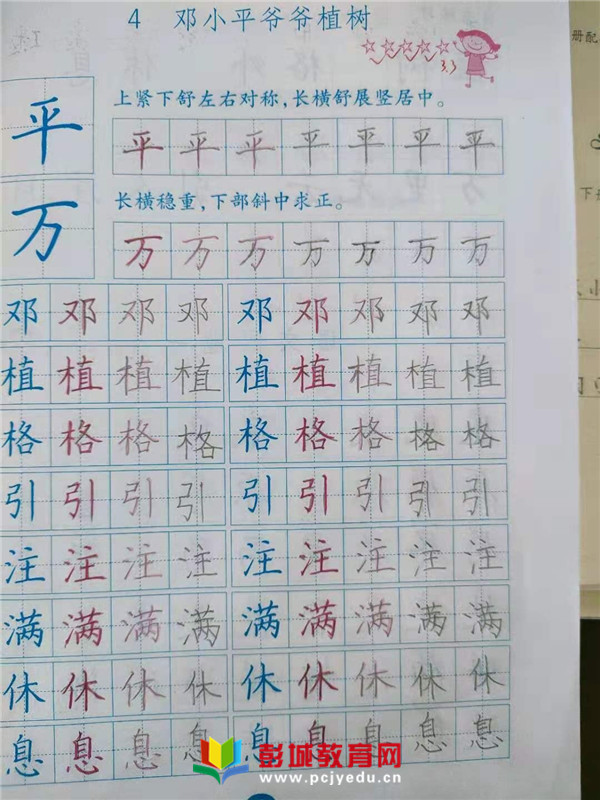 4 邓小平爷爷植树
3.3
平
上紧下舒左右对称，长横舒展竖居中。
平 平 平 平 平 平 平
万
长横稳重，下部斜中求正。
万 万 万 万 万 万 万
邓 邓 邓 邓 邓 邓 邓 邓 邓
植 植 植 植 植 植 植 植 植
格 格 格 格 格 格 格 格 格
引 引 引 引 引 引 引 引 引
注 注 注 注 注 注 注 注 注
满 满 满 满 满 满 满 满 满
休 休 休 休 休 休 休 休 休
息 息 息 息 息 息 息 息 息
彭城教育网
www.pcjyedu.cn
册配